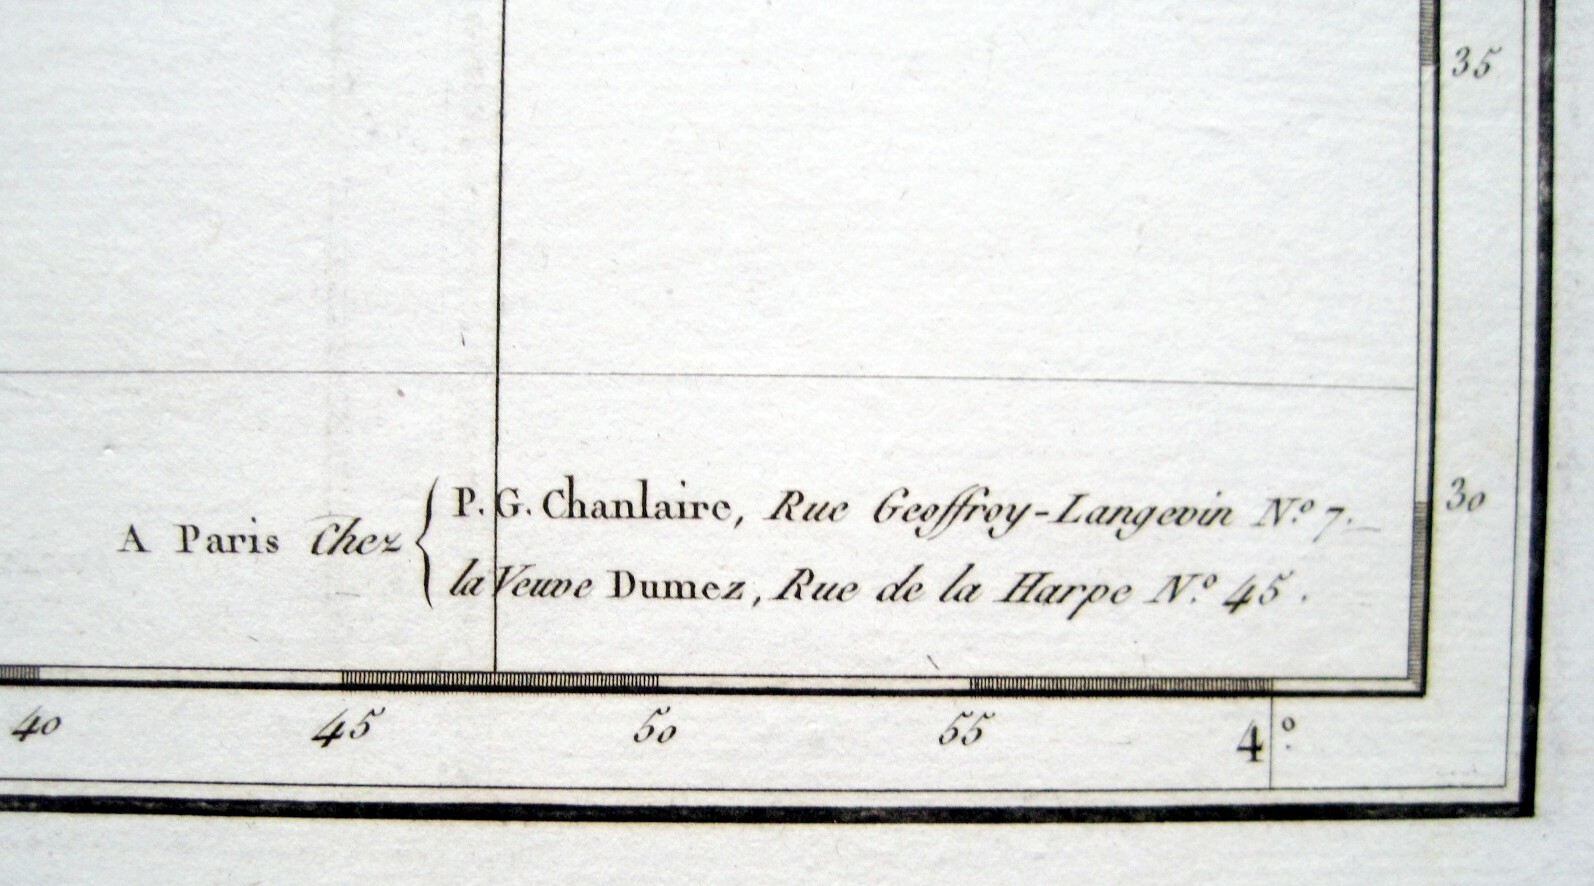 35
30
A Paris Chez { P. G. Chanlaire, Rue Geoffroy-Langevin N.º 7.
la Veuve Dumez, Rue de la Harpe N.º 45.
40 45 50 55 4º